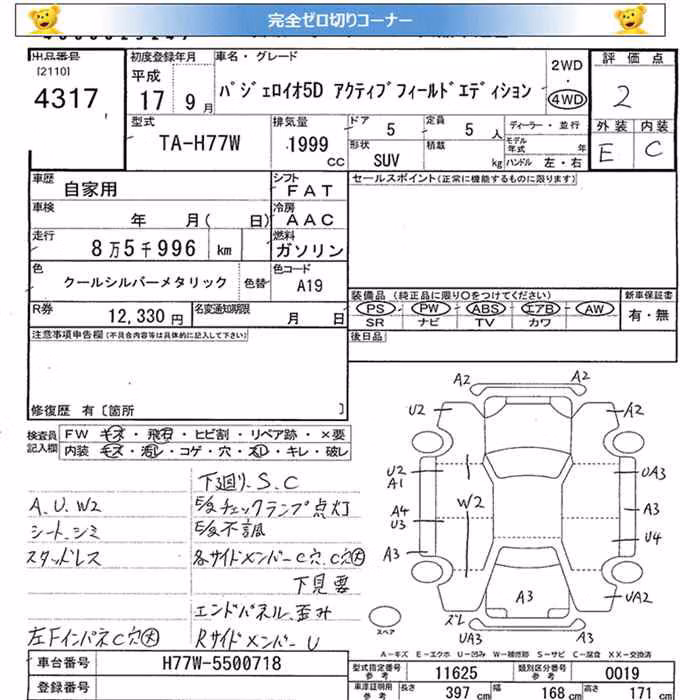 完全ゼロ切りコーナー
出品番号
[2110]
4317
初度登録年月
平成
17 9月
車名・グレード
パジェロイオ5D アクティブフィールドエディション
2WD
・
4WD
評価点
2
外装 内装
E C
型式
TA-H77W
排気量
1999
CC
ドア
5
定員
5 人
形状
SUV
積載
kg
ディーラー・並行
モデル年式 年
ハンドル 左・右
車歴
自家用
シフト
FAT
車検
年 月( 日)
冷房
AAC
走行
8万5千996 km
燃料
ガソリン
色
クールシルバーメタリック
色替
色コード
A19
R券
12,330 円
名変通知期限
月 日
セールスポイント(正常に機能するものに限ります)
装備品 (純正品に限り○をつけてください)
PS PW ABS エアB AW
SR ナビ TV カワ
新車保証書
有・無
後日品
注意事項申告欄(不具合内容等は具体的に記入して下さい)
修復歴 有〔箇所 〕
検査員記入欄
FW キズ・飛石・ヒビ割・リペア跡・×要
内装 キズ・汚レ・コゲ・穴・スレ・キレ・破レ
下廻り.S.C
A.U.W2
E/gチェックランプ点灯
シート.シミ
E/g不調
スタッドレス
各サイドメンバーC穴.C穴大
下見要
エンドパネル.歪み
左FインパネC穴大
RサイドメンバーU
A2 A2
U2 A2
U2
A1
UA3
W2
A4
U3
A3
U4
A3
A3
UA2
ズレ
UA3 A3
スペア
A-キズ E-エクボ U-凹み W-補修跡 S-サビ C-腐食 XX-交換済
車台番号
H77W-5500718
登録番号
型式指定番号
参考
11625
類別区分番号
参考
0019
車庫証明用
参考
長さ 397 cm
幅 168 cm
高さ 171 cm